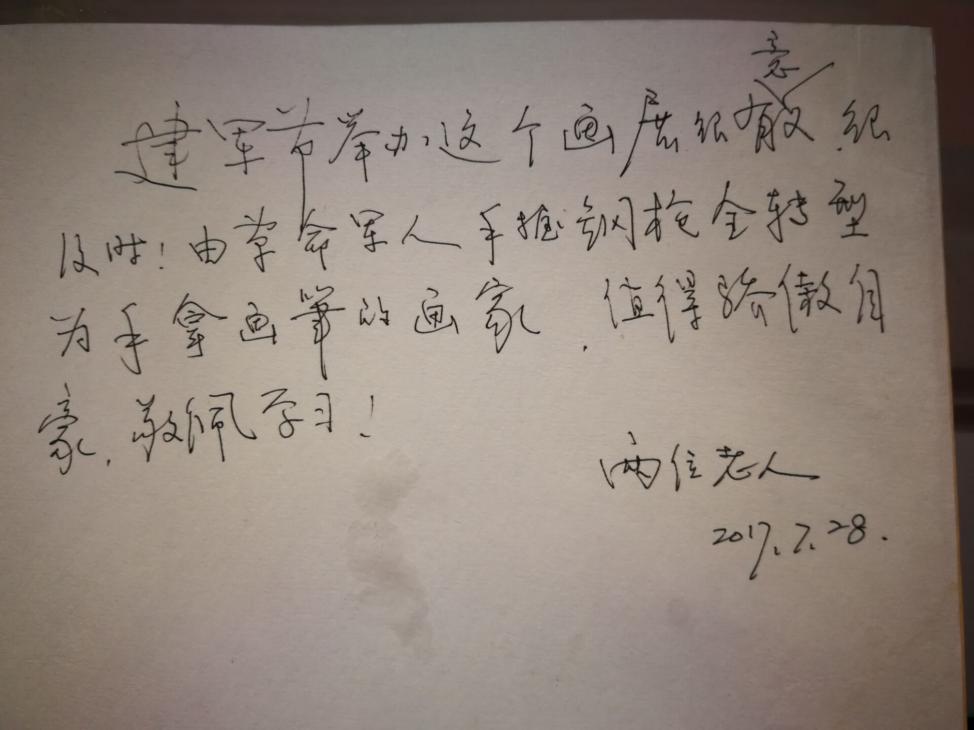 建军节举办这个画展很有意义,很
及时!由革命军人手握钢枪全转型
为手拿画筆的画家,值得骄傲自
豪,敬佩学习!
两位老人
2017.7.28.